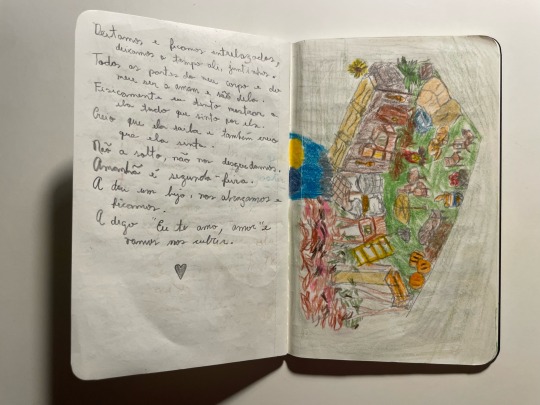 Deitamos e ficamos entrelaçadas,
deixamos o tempo ali, juntinhas.
Todas as partes do meu corpo e do
meu ser a amam e são dela.
Fisicamente eu tento mostrar a
ela tudo que sinto por ela.
Creio que ela saiba e também creio
que ela sinta.
Não a solto, não nos desgrudamos.
Amanhã é segunda-feira.
A dou um bjo, nos abraçamos e
ficamos.
A digo "Eu te amo, amor" e
vamos nos cubrir.